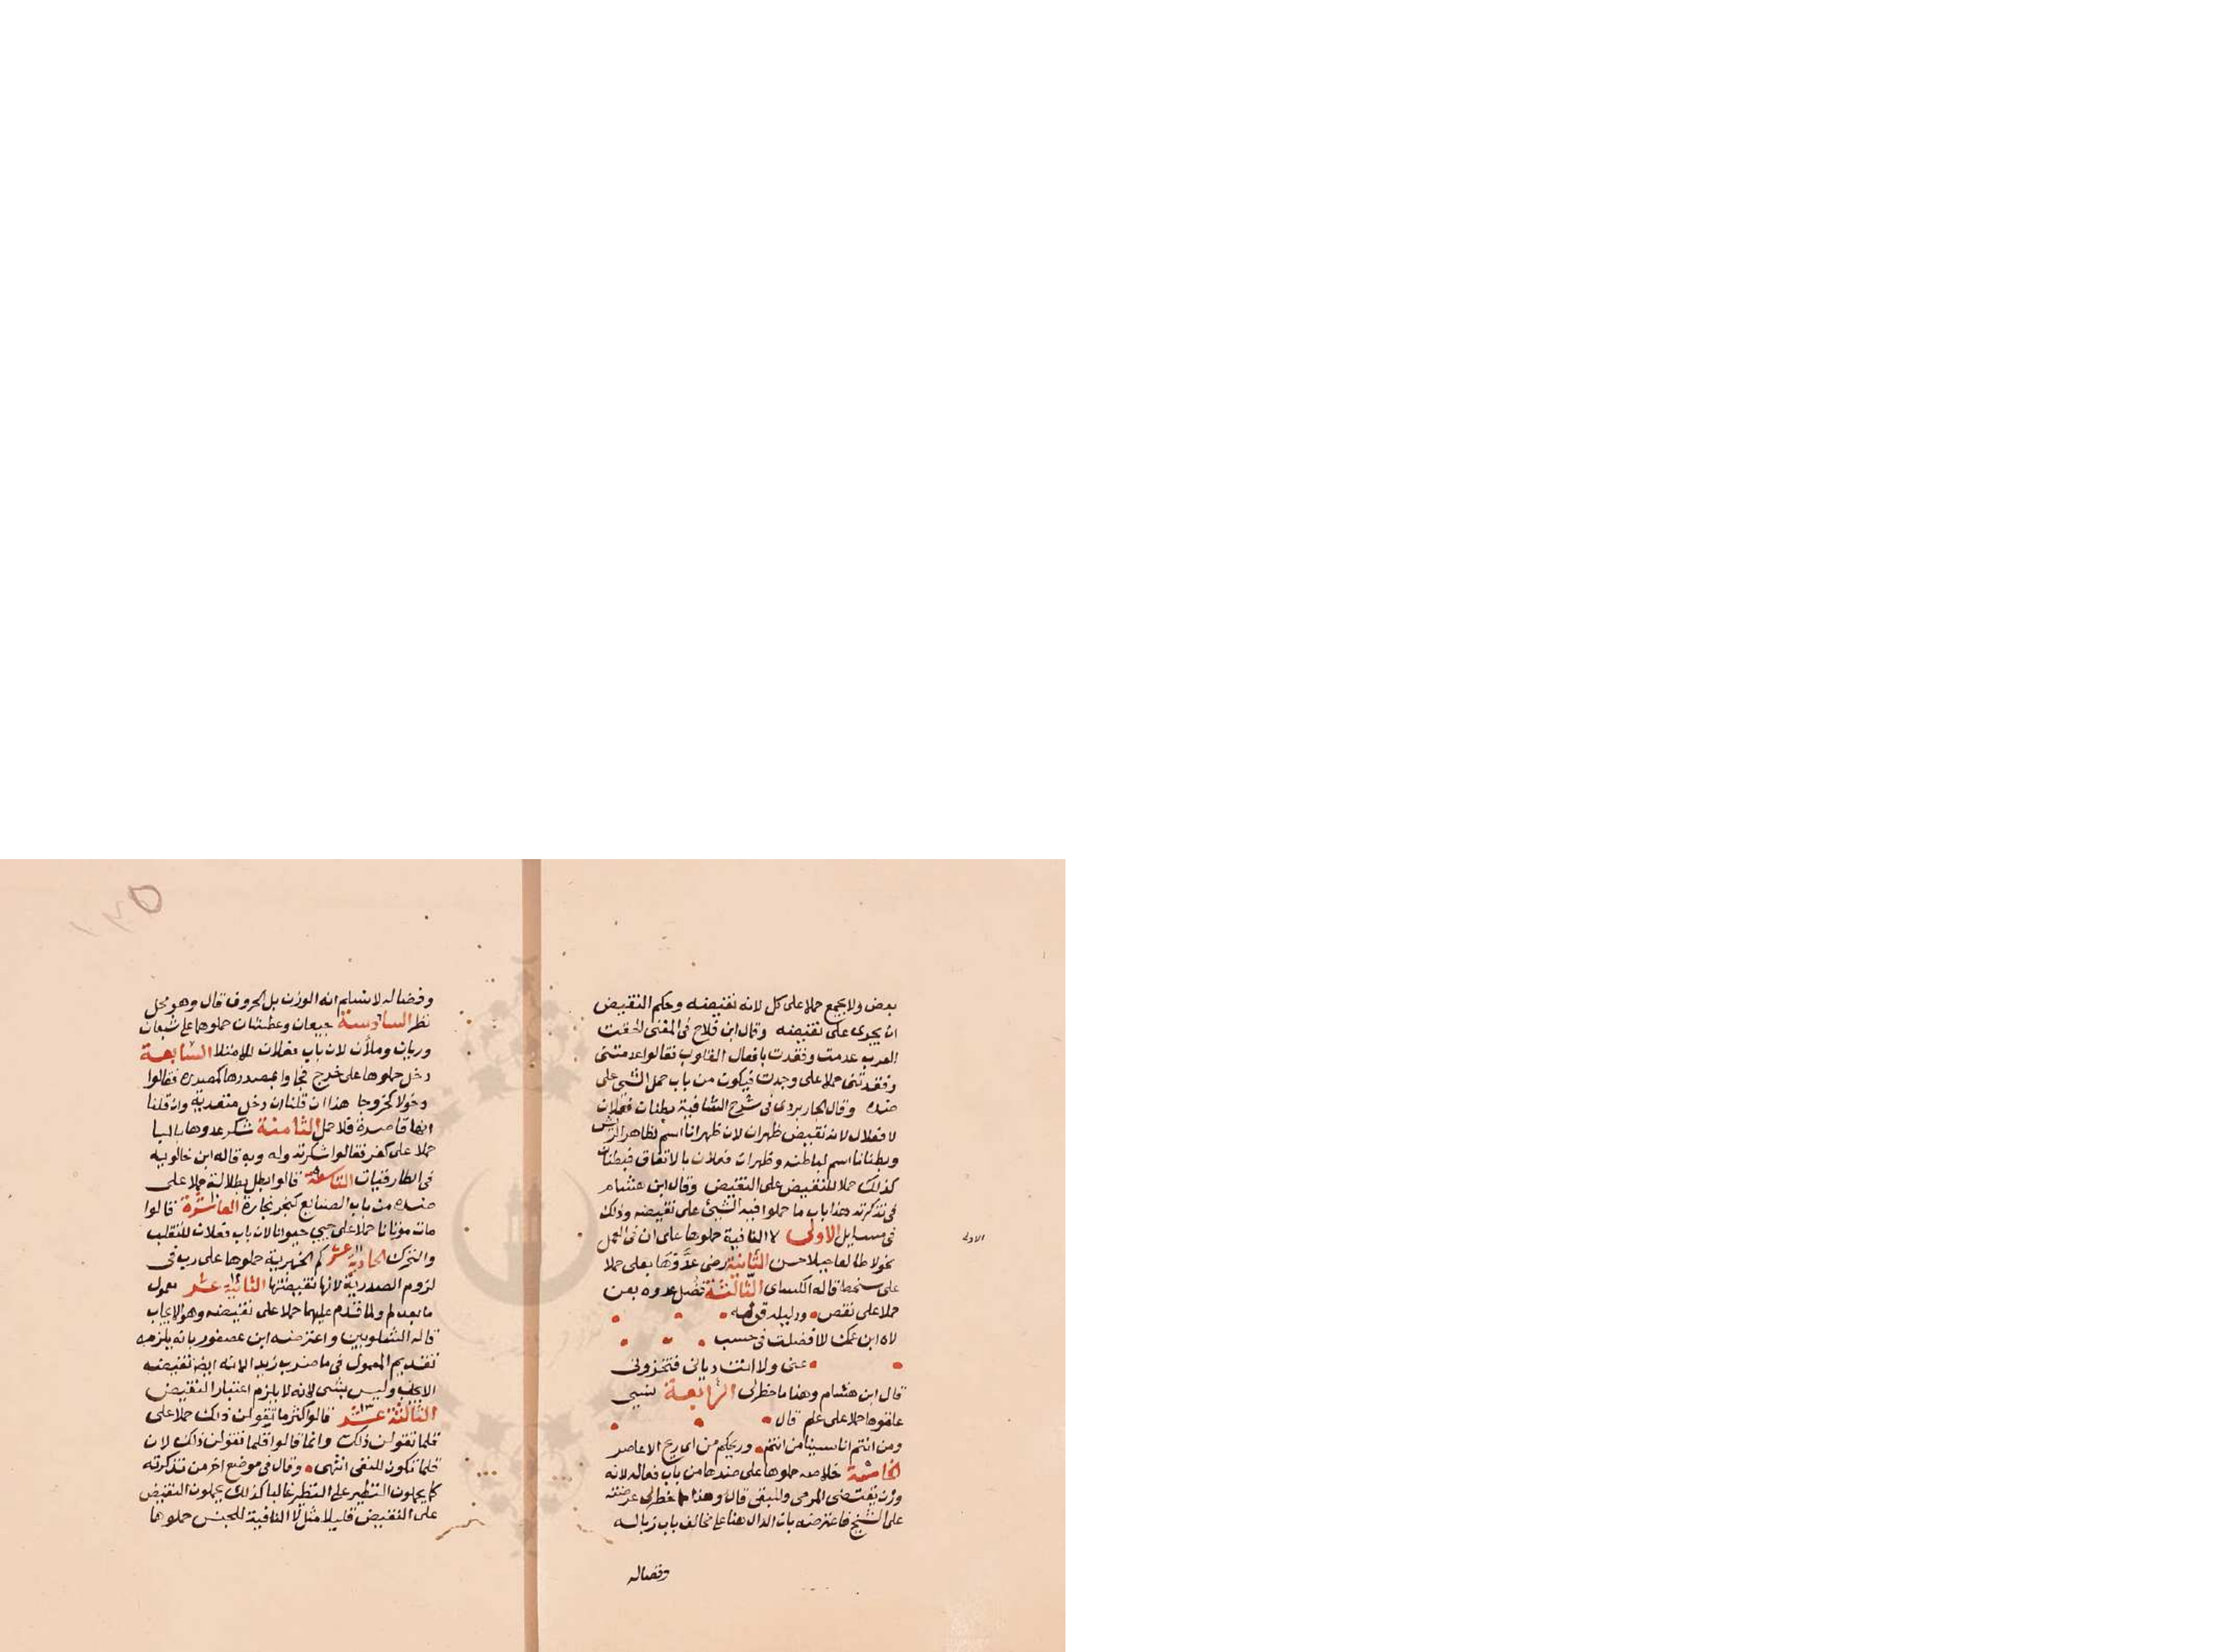 بعض ولا يجمع حملا على كل لانه نقيضه وحكم النقيض
ان يجرى على نقيضه وقال ابن فلاح فى المغنى الحقت
العرب عدمت وفقدت بافعال القلوب فقالوا عدمتنى
وفقدتنى حملا على وجدت فيكون من باب حمل الشى على
ضده وقال الجاربردى فى شرح الشافية بطنان فعلان
لا فعلال لانه نقيض ظهران لان ظهرانا اسم لظاهر الريش
وبطنانا اسم لباطنه وظهران فعلان بالاتفاق فبطنان
كذلك حملا للنقيض على النقيض وقال ابن هشام
فى تذكرته هذا باب ما حملوا فيه الشيئ على نقيضه وذلك
فى مسايل الاولى لا النافية حملوها على ان فى العمل
الاولى
نحو لا طالعا جبلا حسن الثانية رضى عدوها بعلى حملا
على سخط قاله الكساى الثالثة فضل عدوه بعن
حملا على نقص ودليله قوله
لاه ابن عمك لا افضلت فى حسب
عنى ولا انت ديانى فتخزونى
قال ابن هشام وهذا ما خطر لى الرابعة نسي
علقوها حملا على علم قال
ومن انتم انا نسينا من انتم وريحكم من اى ريح الاعاصر
الخامسة خلاصه حملوها على ضدها من باب فعاله لانه
وزن نقتضى المرمى والمبقى قال وهذا خطر لى عرضته
على الشيخ فاعترضه بان الدال هنا على خالف باب زباله
وفضاله
وفضاله لا نسلم انه الوزن بل الحروف قال وهو محل
نظر السادسة جيعان وعطشان حملوهما على شبعان
وريان وملأن لان باب فعلان للامتلا السابعة
دخل حملوها على خرج فجاوا بمصدرها كمصدره فقالوا
دخولا كخروجا هذا ان قلنا ان دخل متعدية وان قلنا
انها قاصدة فلا حمل الثامنة شكر عدوها بالبا
حملا على كفر فقالوا شكرته وله وبه قاله ابن خالويه
فى الطارقيات التاسعة قالوا بطل بطالة حملا على
ضده من باب الصنايع كنجر نجارة العاشرة قالوا
مات موتانا حملا على حيي حيوانا لان باب فعلان للتقلب
والتحرك الحادية عشر كم الخبرية حملوها على رب فى
لزوم الصدرية لانها نقيضتها الثانية عشر معمول
ما بعد لم ولما قدم عليهما حملا على نقيضه وهو الايجاب
قاله الشلوبين واعترضه ابن عصفور بانه يلزمه
تقديم المعمول فى ما ضرب زيد الانه ايضا نقيضه
الايجاب وليس بشى لانه لا يلزم اعتبار النقيض
الثالثة عشر قالوا كثر ما تقولن ذلك حملا على
قلما تقولن ذلك وانما قالوا قلما تقولن ذلك لان
قلما تكون للنفى انتهى وقال فى موضع اخر من تذكرته
كما يحملون النظير على النظير غالبا كذلك يحملون النقيض
على النقيض قليلا مثل لا النافية للجنس حملوها